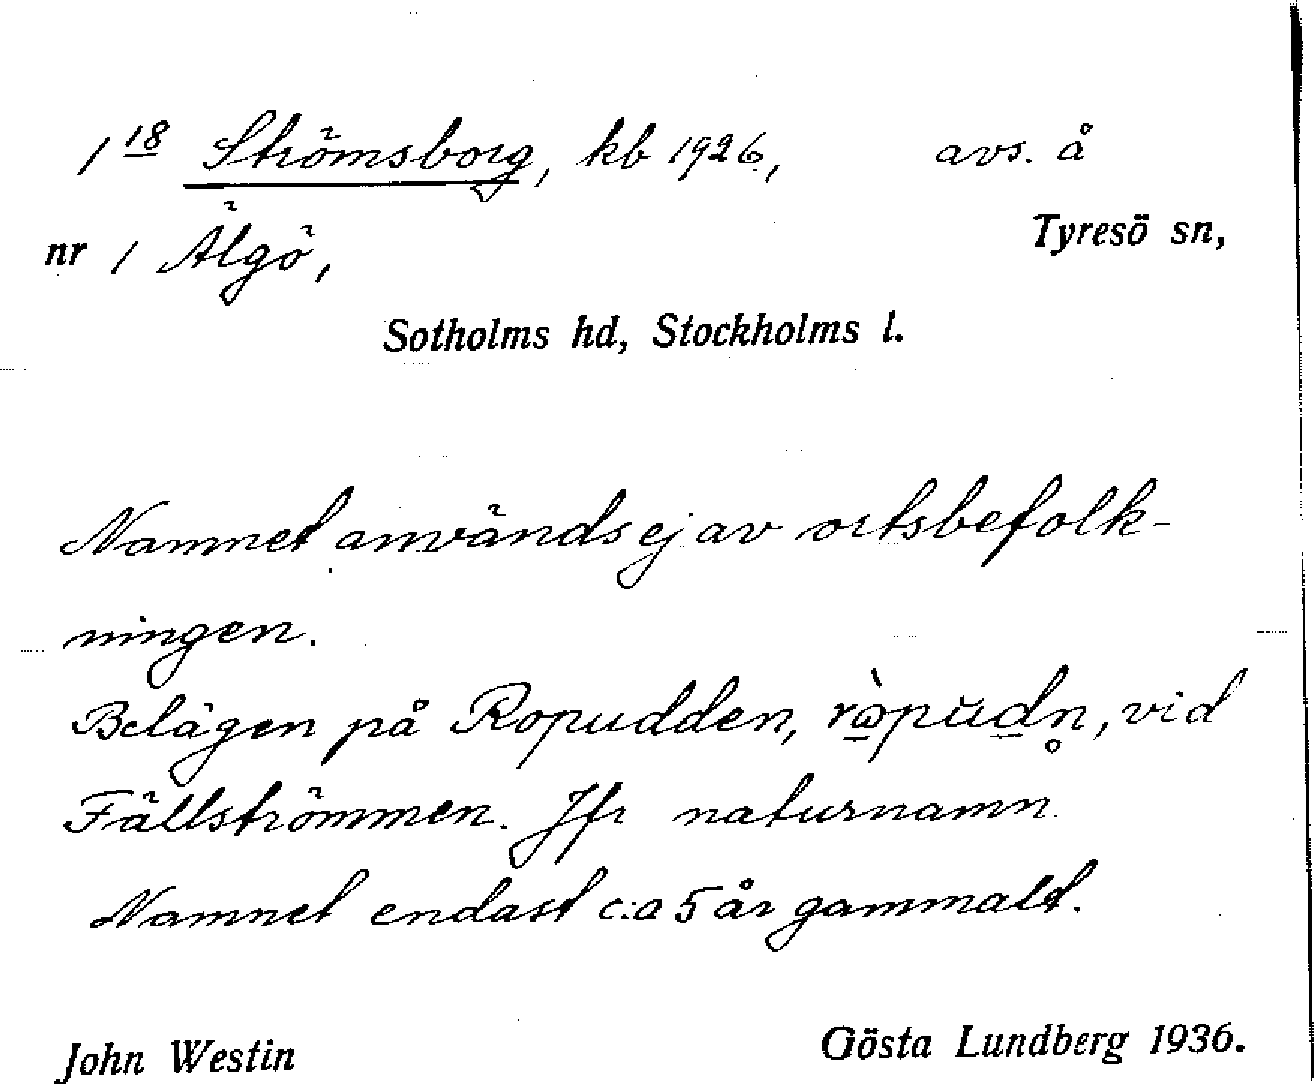 1 18 Strömsborg, kb 1926, avs. å
nr 1 Älgö, Tyresö sn,
Sotholms hd, Stockholms l.
Namnet används ej av ortsbefolk-
ningen.
Belägen på Ropudden, vid
Fällströmmen. Jfr naturnamn.
Namnet endast c:a 5 år gammalt.
John Westin Gösta Lundberg 1936.